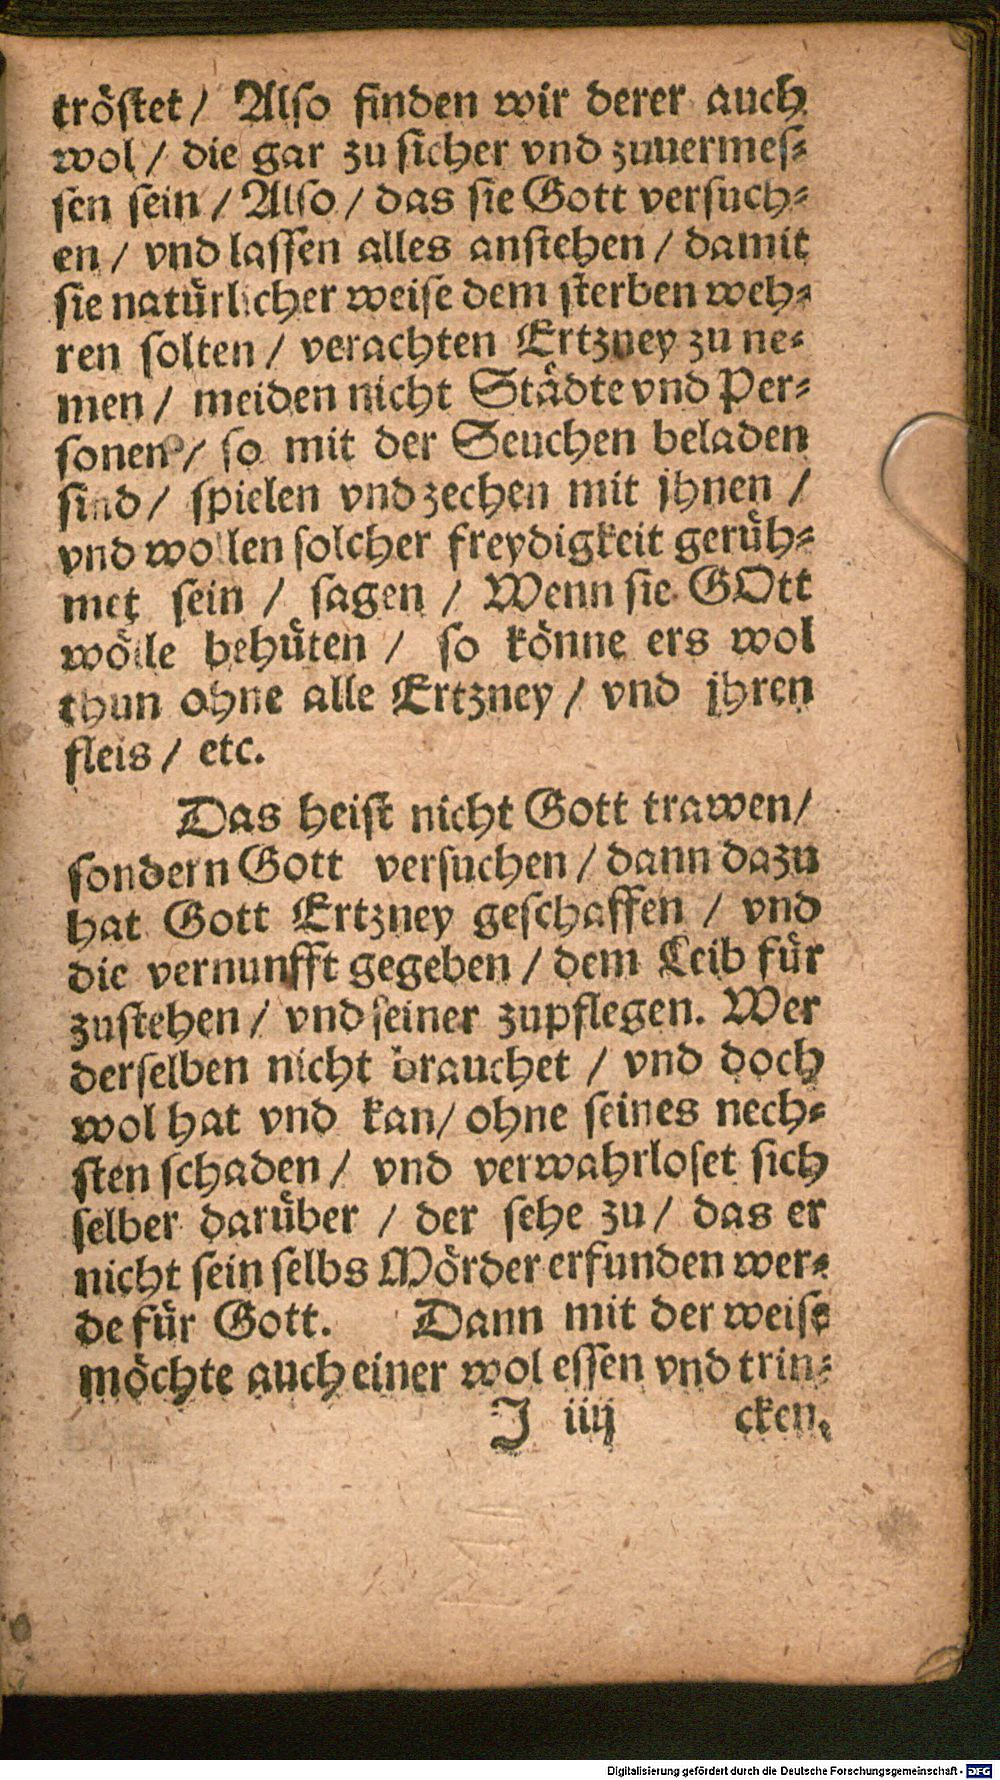 tröſtet / Alſo finden wir derer auch
wol / die gar zu ſicher vnd zuuermeſ-
ſen ſein / Alſo / das ſie Gott verſuch-
en / vnd laſſen alles anſtehen / damit
ſie natürlicher weiſe dem ſterben weh-
ren ſolten / verachten Ertzney zu ne-
men / meiden nicht Städte vnd Per-
ſonen / ſo mit der Seuchen beladen
ſind / ſpielen vnd zechen mit jhnen /
vnd wollen ſolcher freydigkeit gerüh-
met ſein / ſagen / Wenn ſie GOtt
wölle behüten / ſo könne ers wol
thun ohne alle Ertzney / vnd jhren
fleis / etc.
Das heiſt nicht Gott trawen /
ſondern Gott verſuchen / dann dazu
hat Gott Ertzney geſchaffen / vnd
die vernunfft gegeben / dem Leib für
zuſtehen / vnd ſeiner zupflegen. Wer
derſelben nicht brauchet / vnd doch
wol hat vnd kan / ohne ſeines nech-
ſten ſchaden / vnd verwahrloſet ſich
ſelber darüber / der ſehe zu / das er
nicht ſein ſelbs Mörder erfunden wer-
de für Gott. Dann mit der weiſe
möchte auch einer wol eſſen vnd trin-
J iiij cken,
Digitalisierung gefördert durch die Deutsche Forschungsgemeinschaft - DFG